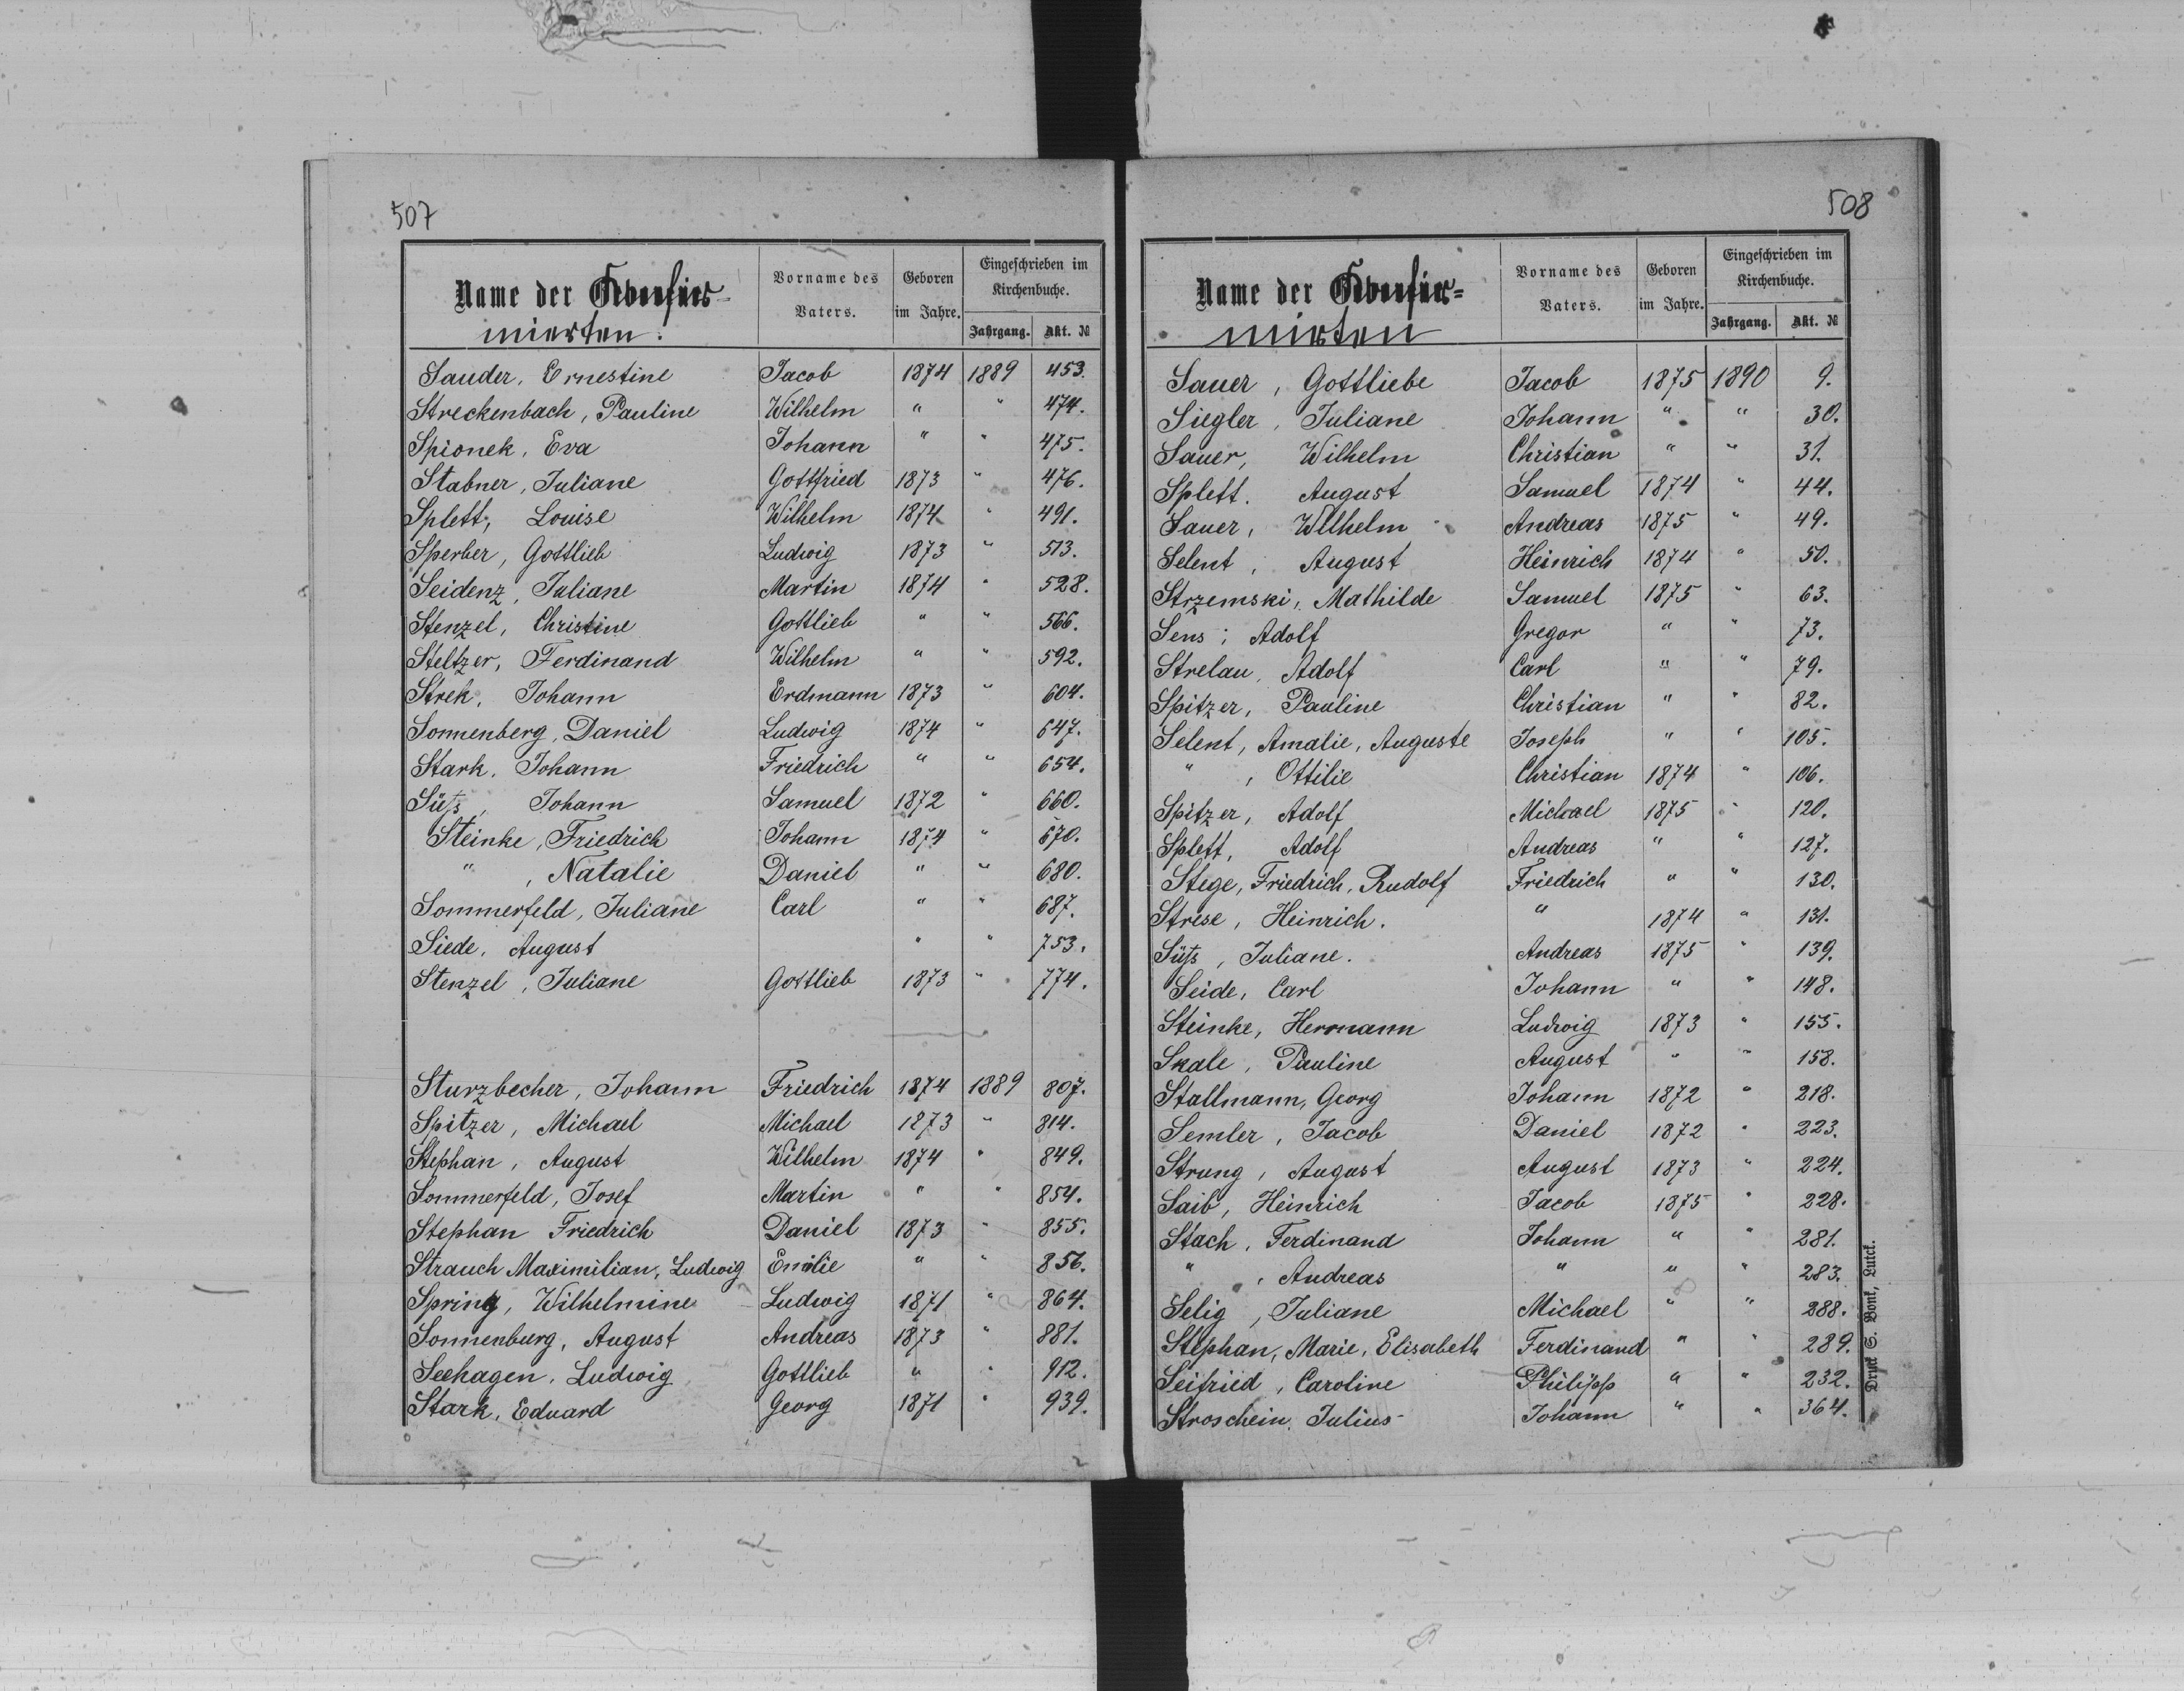 507
Name der Confir-
mirten.
Vorname des
Vaters.
Geboren
im Jahre.
Eingeschrieben im
Kirchenbuche.
Jahrgang. Akt. №
Sauder, Ernestine Jacob 1874 1889 453.
Streckenbach, Pauline Wilhelm " " 474.
Spionek, Eva Johann " " 475.
Stabner, Juliane Gottfried 1873 " 476.
Splett, Louise Wilhelm 1874 " 491.
Sperber, Gottlieb Ludwig 1873 " 513.
Seidenz, Juliane Martin 1874 " 528.
Stenzel, Christine Gottlieb " " 566.
Steltzer, Ferdinand Wilhelm " " 592.
Strek, Johann Erdmann 1873 " 604.
Sonnenberg, Daniel Ludwig 1874 " 647.
Stark, Johann Friedrich " " 654.
Süß, Johann Samuel 1872 " 660.
Steinke, Friedrich Johann 1874 " 670.
" , Natalie Daniel " " 680.
Sommerfeld, Juliane Carl " " 687.
Siede, August " " 753.
Stenzel, Juliane Gottlieb 1873 " 774.
Sturzbecher, Johann Friedrich 1874 1889 807.
Spitzer, Michael Michael 1873 " 814.
Stephan, August Wilhelm 1874 " 849.
Sommerfeld, Josef Martin " " 854.
Stephan Friedrich Daniel 1873 " 855.
Strauch Maximilian, Ludwig Emilie " " 856.
Spring, Wilhelmine Ludwig 1871 " 864.
Sonnenburg, August Andreas 1873 " 881.
Seehagen, Ludwig Gottlieb " " 912.
Stark, Eduard Georg 1871 " 939.
508
Name der Confir-
mirten
Vorname des
Vaters.
Geboren
im Jahre.
Eingeschrieben im
Kirchenbuche.
Jahrgang. Akt. №
Sauer, Gottliebe Jacob 1875 1890 9.
Siegler, Juliane Johann " " 30.
Sauer, Wilhelm Christian " " 31.
Splett. August Samuel 1874 " 44.
Sauer, Wilhelm Andreas 1875 " 49.
Selent, August Heinrich 1874 " 50.
Strzemski, Mathilde Samuel 1875 " 63.
Sens, Adolf Gregor " " 73.
Strelau, Adolf Carl " " 79.
Spitzer, Pauline Christian " " 82.
Selent, Amalie, Auguste Joseph " " 105.
" , Ottilie Christian 1874 " 106.
Spitzer, Adolf Michael 1875 " 120.
Splett, Adolf Andreas " " 127.
Stege, Friedrich, Rudolf Friedrich " " 130.
Strese, Heinrich. " 1874 " 131.
Süß, Juliane. Andreas 1875 " 139.
Seide, Carl Johann " " 148.
Steinke, Hermann Ludwig 1873 " 155.
Skale, Pauline August " " 158.
Stallmann, Georg Johann 1872 " 218.
Semler, Jacob Daniel 1872 " 223.
Strung, August August 1873 " 224.
Saib, Heinrich Jacob 1875 " 228.
Stach, Ferdinand Johann " " 281.
" , Andreas " " " 283.
Selig, Juliane Michael " " 288.
Stephan, Marie, Elisabeth Ferdinand " " 289.
Seifried, Caroline Philipp " " 232.
Stroschein, Julius Johann " " 364.
Druck S. Bonk, Lutck.